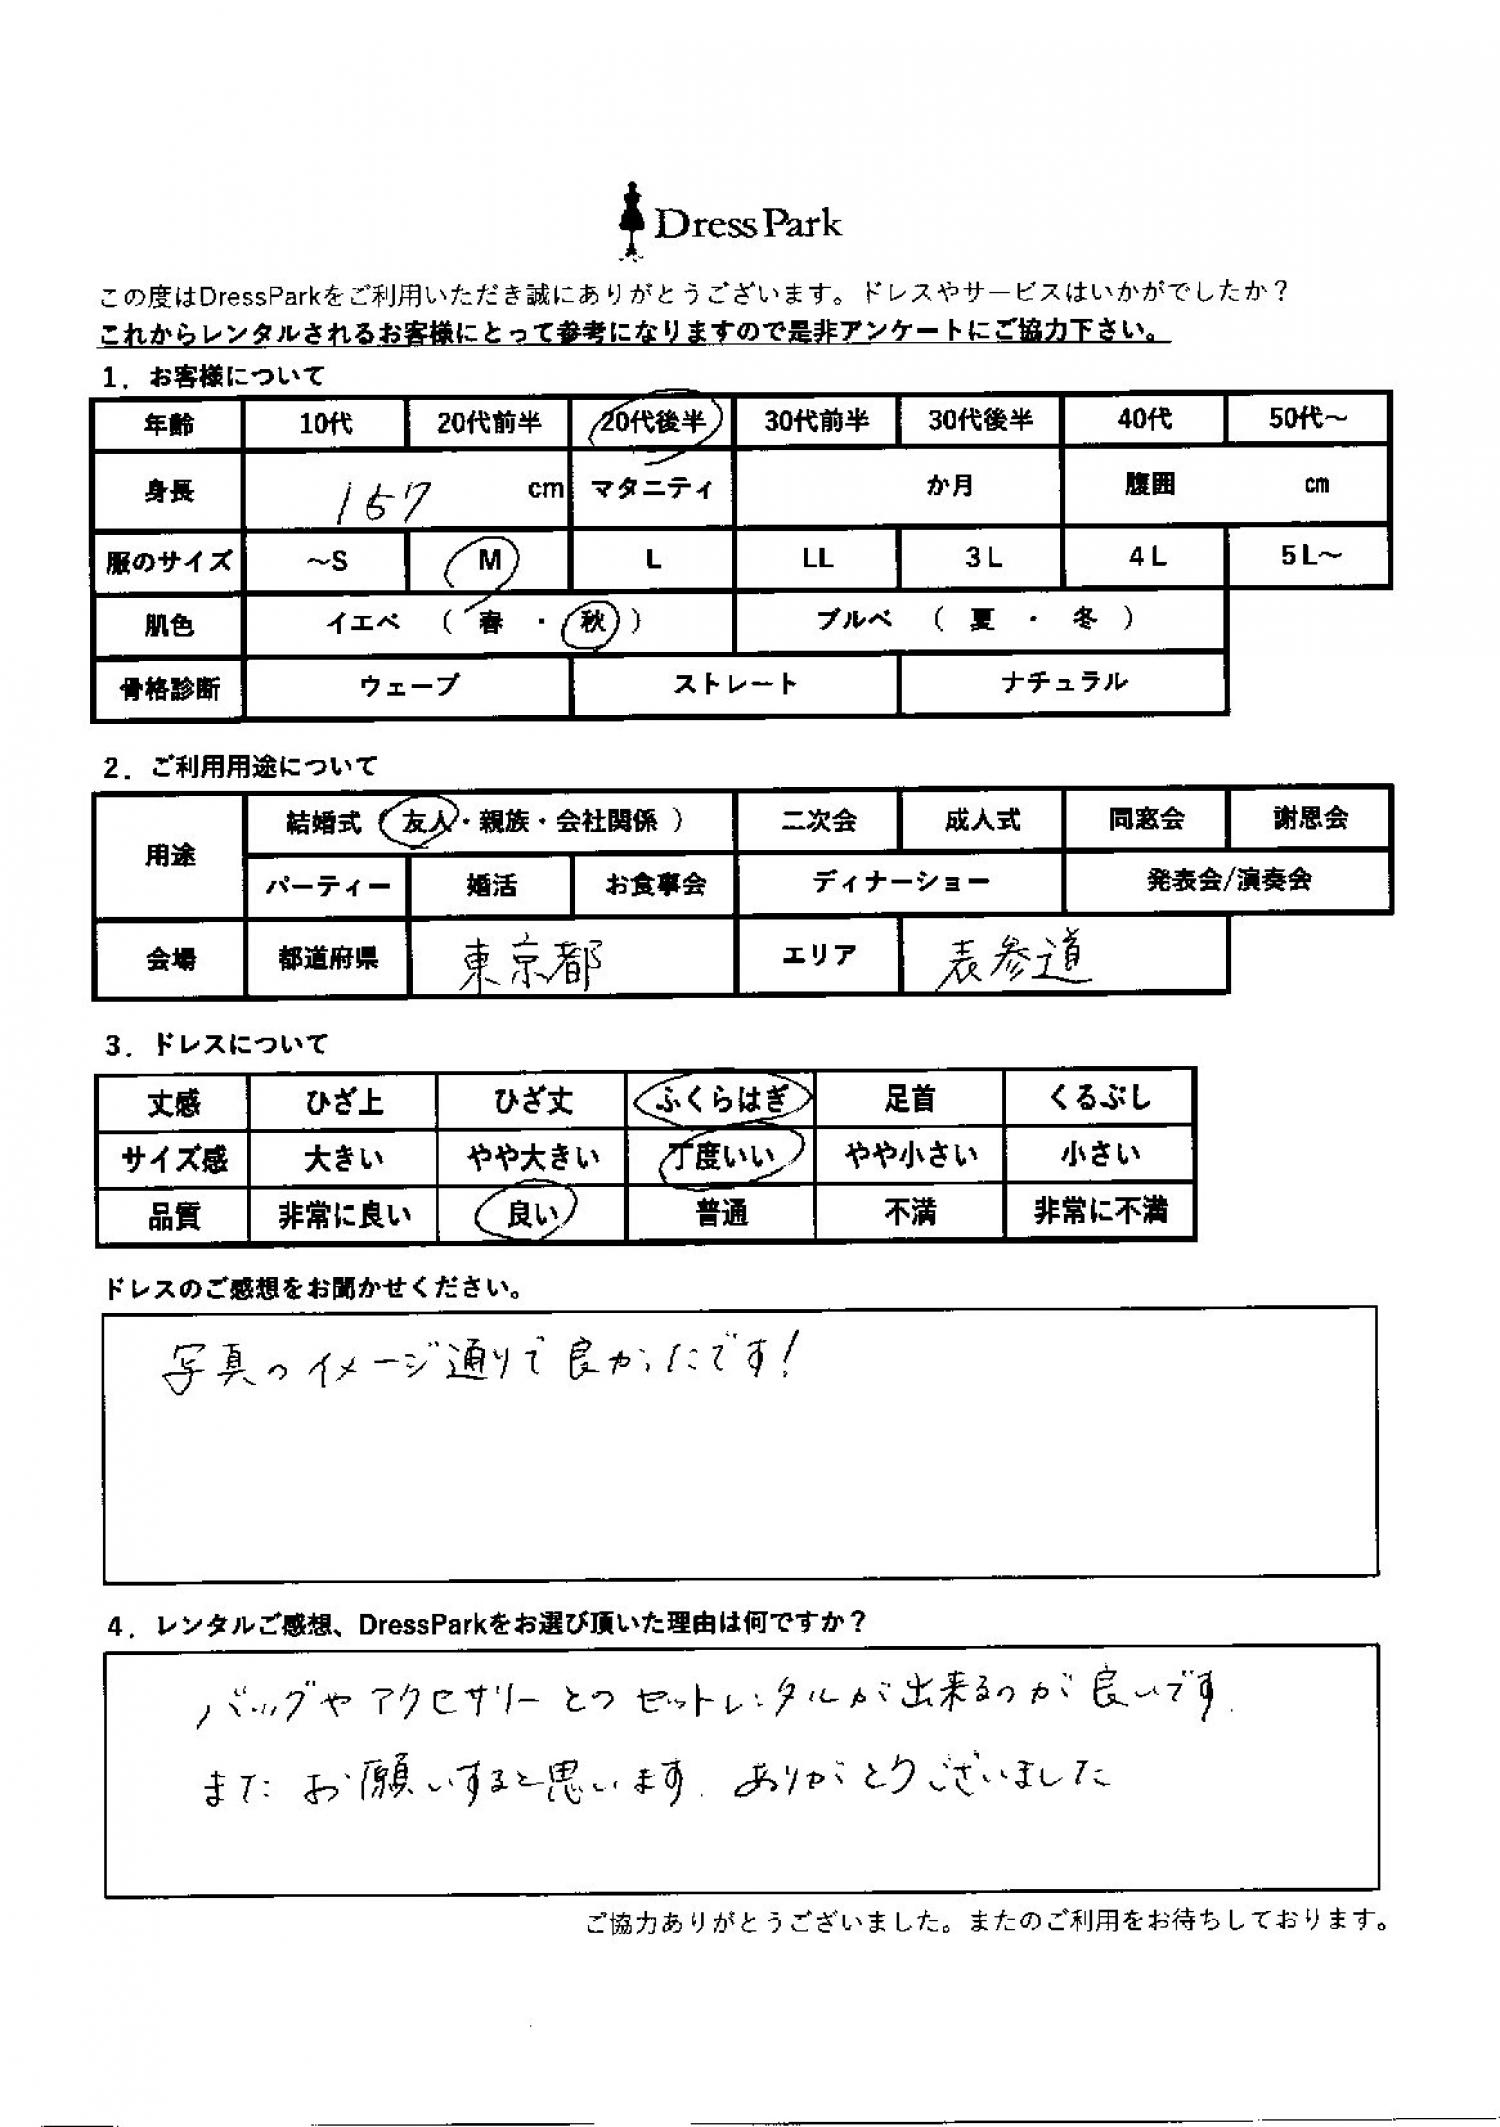 Dress Park
この度はDressParkをご利用いただき誠にありがとうございます。ドレスやサービスはいかがでしたか？
これからレンタルされるお客様にとって参考になりますので是非アンケートにご協力下さい。
1．お客様について
年齢 10代 20代前半 20代後半 30代前半 30代後半 40代 50代～
身長 167 cm マタニティ か月 腹囲 cm
服のサイズ ～S M L LL 3L 4L 5L～
肌色 イエベ （ 春 ・ 秋 ） ブルベ （ 夏 ・ 冬 ）
骨格診断 ウェーブ ストレート ナチュラル
2．ご利用用途について
用途 結婚式（ 友人・親族・会社関係 ） 二次会 成人式 同窓会 謝恩会
パーティー 婚活 お食事会 ディナーショー 発表会/演奏会
会場 都道府県 東京都 エリア 表参道
3．ドレスについて
丈感 ひざ上 ひざ丈 ふくらはぎ 足首 くるぶし
サイズ感 大きい やや大きい 丁度いい やや小さい 小さい
品質 非常に良い 良い 普通 不満 非常に不満
ドレスのご感想をお聞かせください。
写真のイメージ通りで良かったです！
4．レンタルご感想、DressParkをお選び頂いた理由は何ですか？
バッグやアクセサリーとのセットレンタルが出来るのが良いです.
またお願いすると思います. ありがとうございました
ご協力ありがとうございました。またのご利用をお待ちしております。